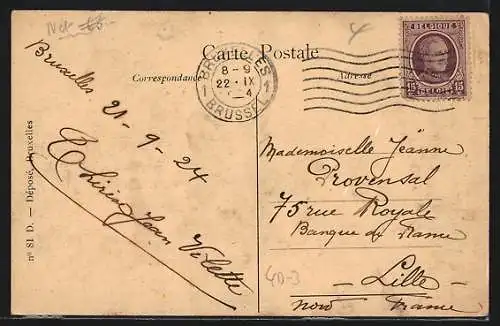 Carte Postale
Correspondance
Adresse
BRUXELLES
8 - 9
22 - IX
4
1 1
BRUSSEL
BELGIQUE
15 15
BELGIË
Bruxelles
21-9-24
Jean Vilette
Mademoiselle Jeanne
Provensal
75 rue Royale
Banque de France
Lille
Nord France
40-3
nº SI. D. — Déposé, Bruxelles